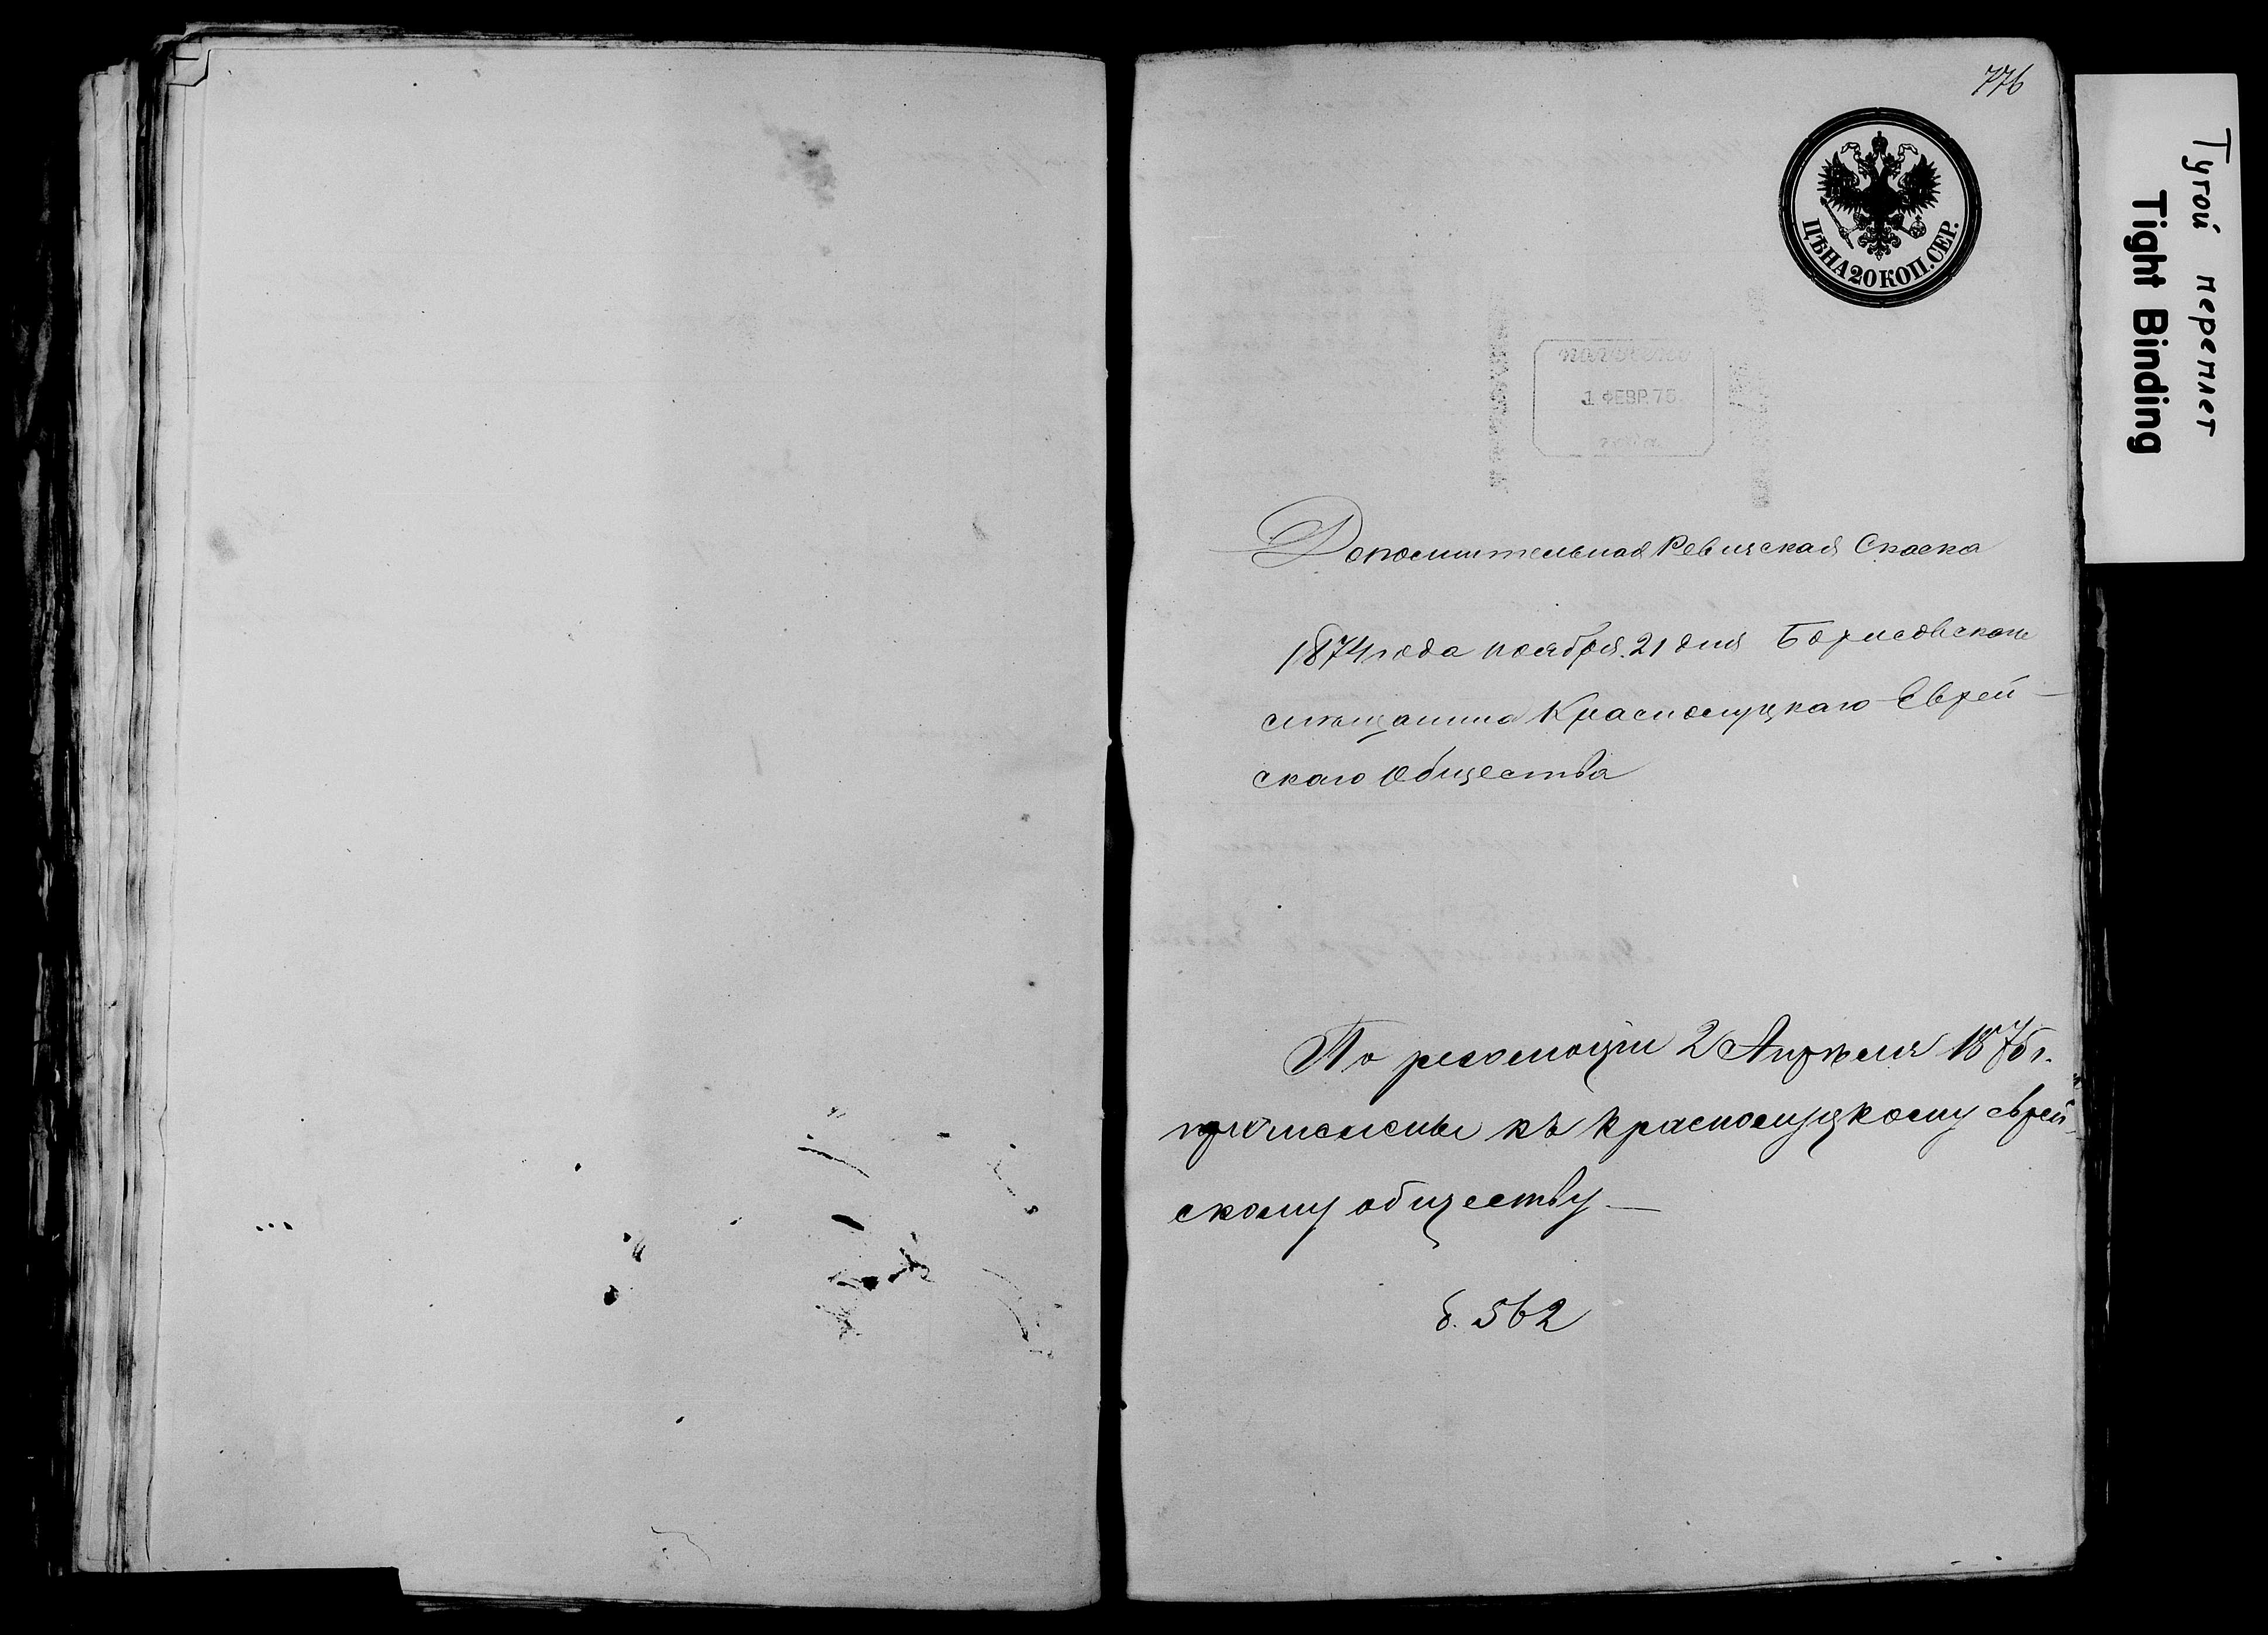 776
ЦѢНА 20 КОП. СЕР.
1 ФЕВР. 75.
Тугой переплет
Tight Binding
Дополнительная Ревизская Сказка
1874 года ноября 21 дня Борисовскаго
мѣщанина Краснолуцкаго Еврей-
скаго Общества
По резолюціи 2 Апрѣля 1875 г.
причислены къ Краснолуцкому еврей-
скому обществу —
б. 562